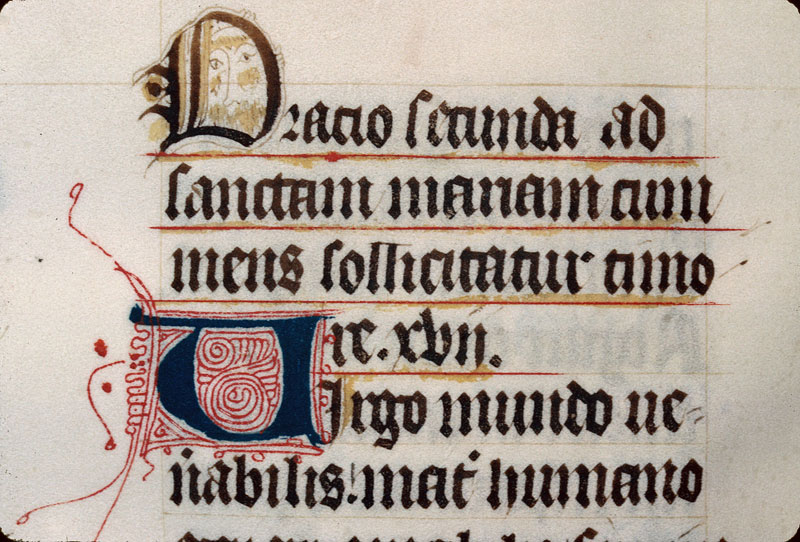 Oracio secunda ad
sanctam mariam cum
mens sollicitatur timo
re. xvii.
Virgo mundo ue-
nabilis! mat humano